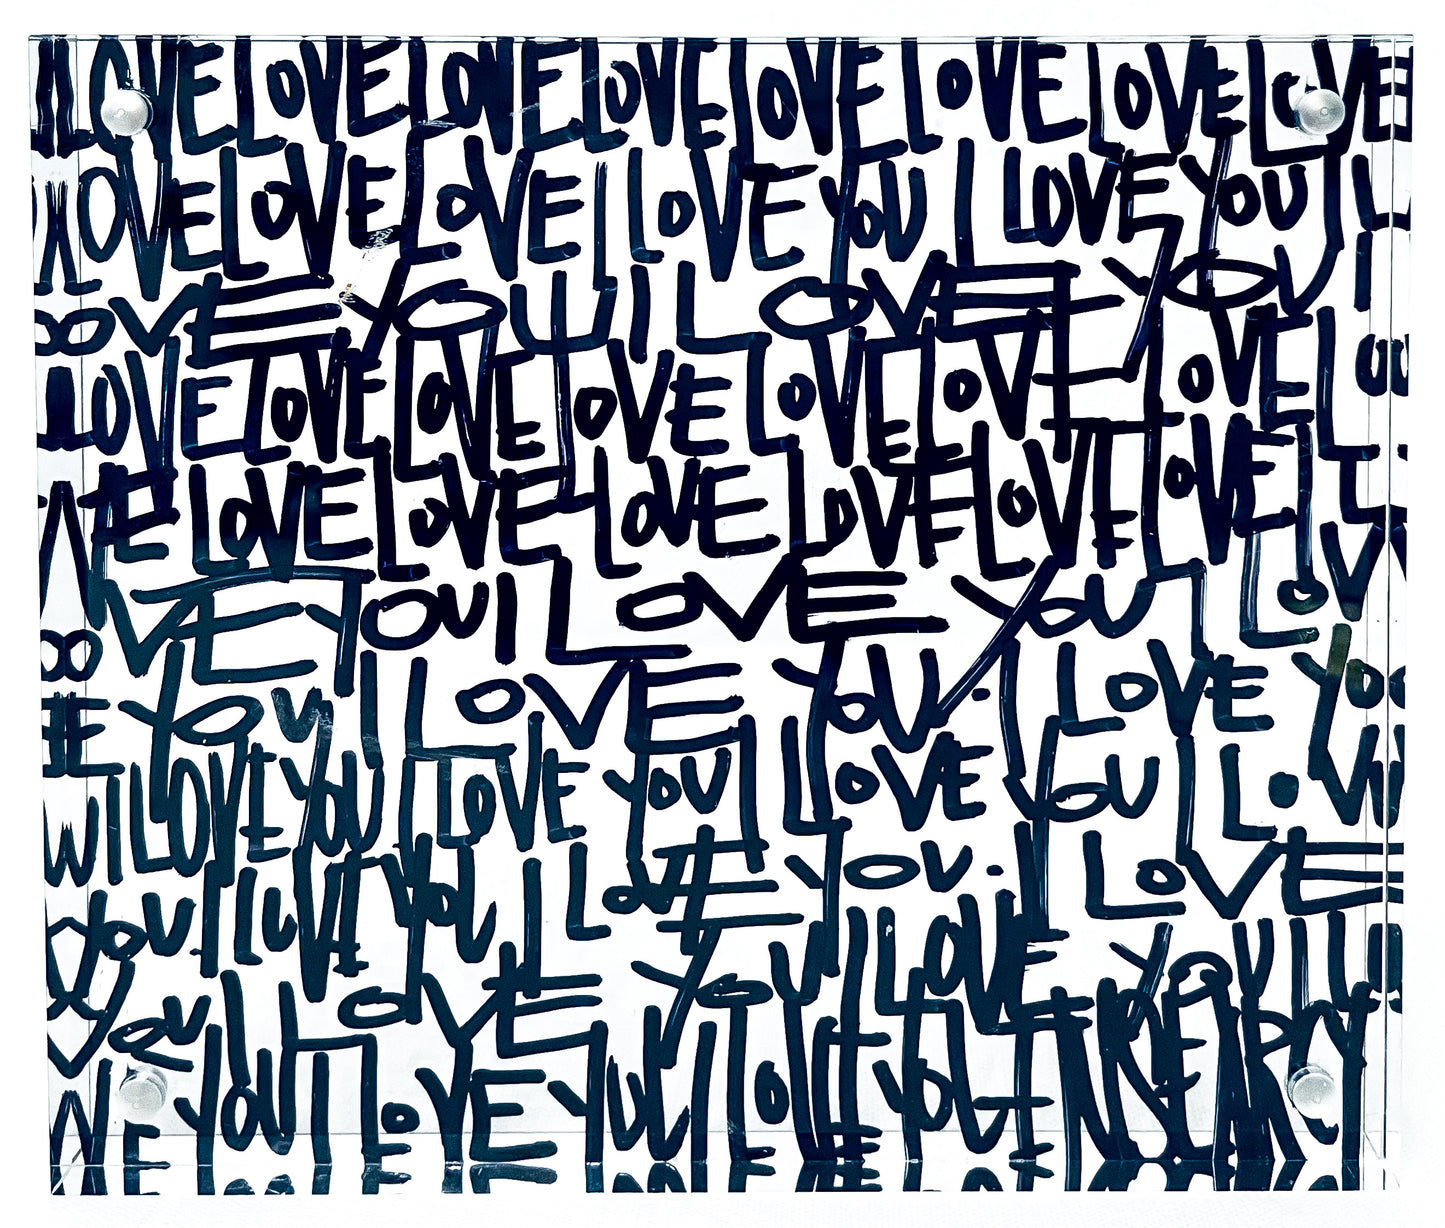 LOVE LOVE LOVE LOVE LOVE LOVE LOVE LOVE
LOVE LOVE LOVE I LOVE YOU I LOVE YOU I L
OVE YOU I LOVE YOU I
LOVE LOVE LOVE LOVE LOVE LOVE LOVE LO
VE LOVE LOVE LOVE LOVE LOVE LOVE I
VE YOU I LOVE YOU I LOV
E YOU I LOVE YOU. I LOVE YOU
I LOVE YOU I LOVE YOU I LOVE YOU I LOV
YOU I LOVE YOU I LOVE YOU. I LOVE
YOU I LOVE YOU I LOVE YOU I LO
VE YOU I LOVE YOU I LOVE YOU